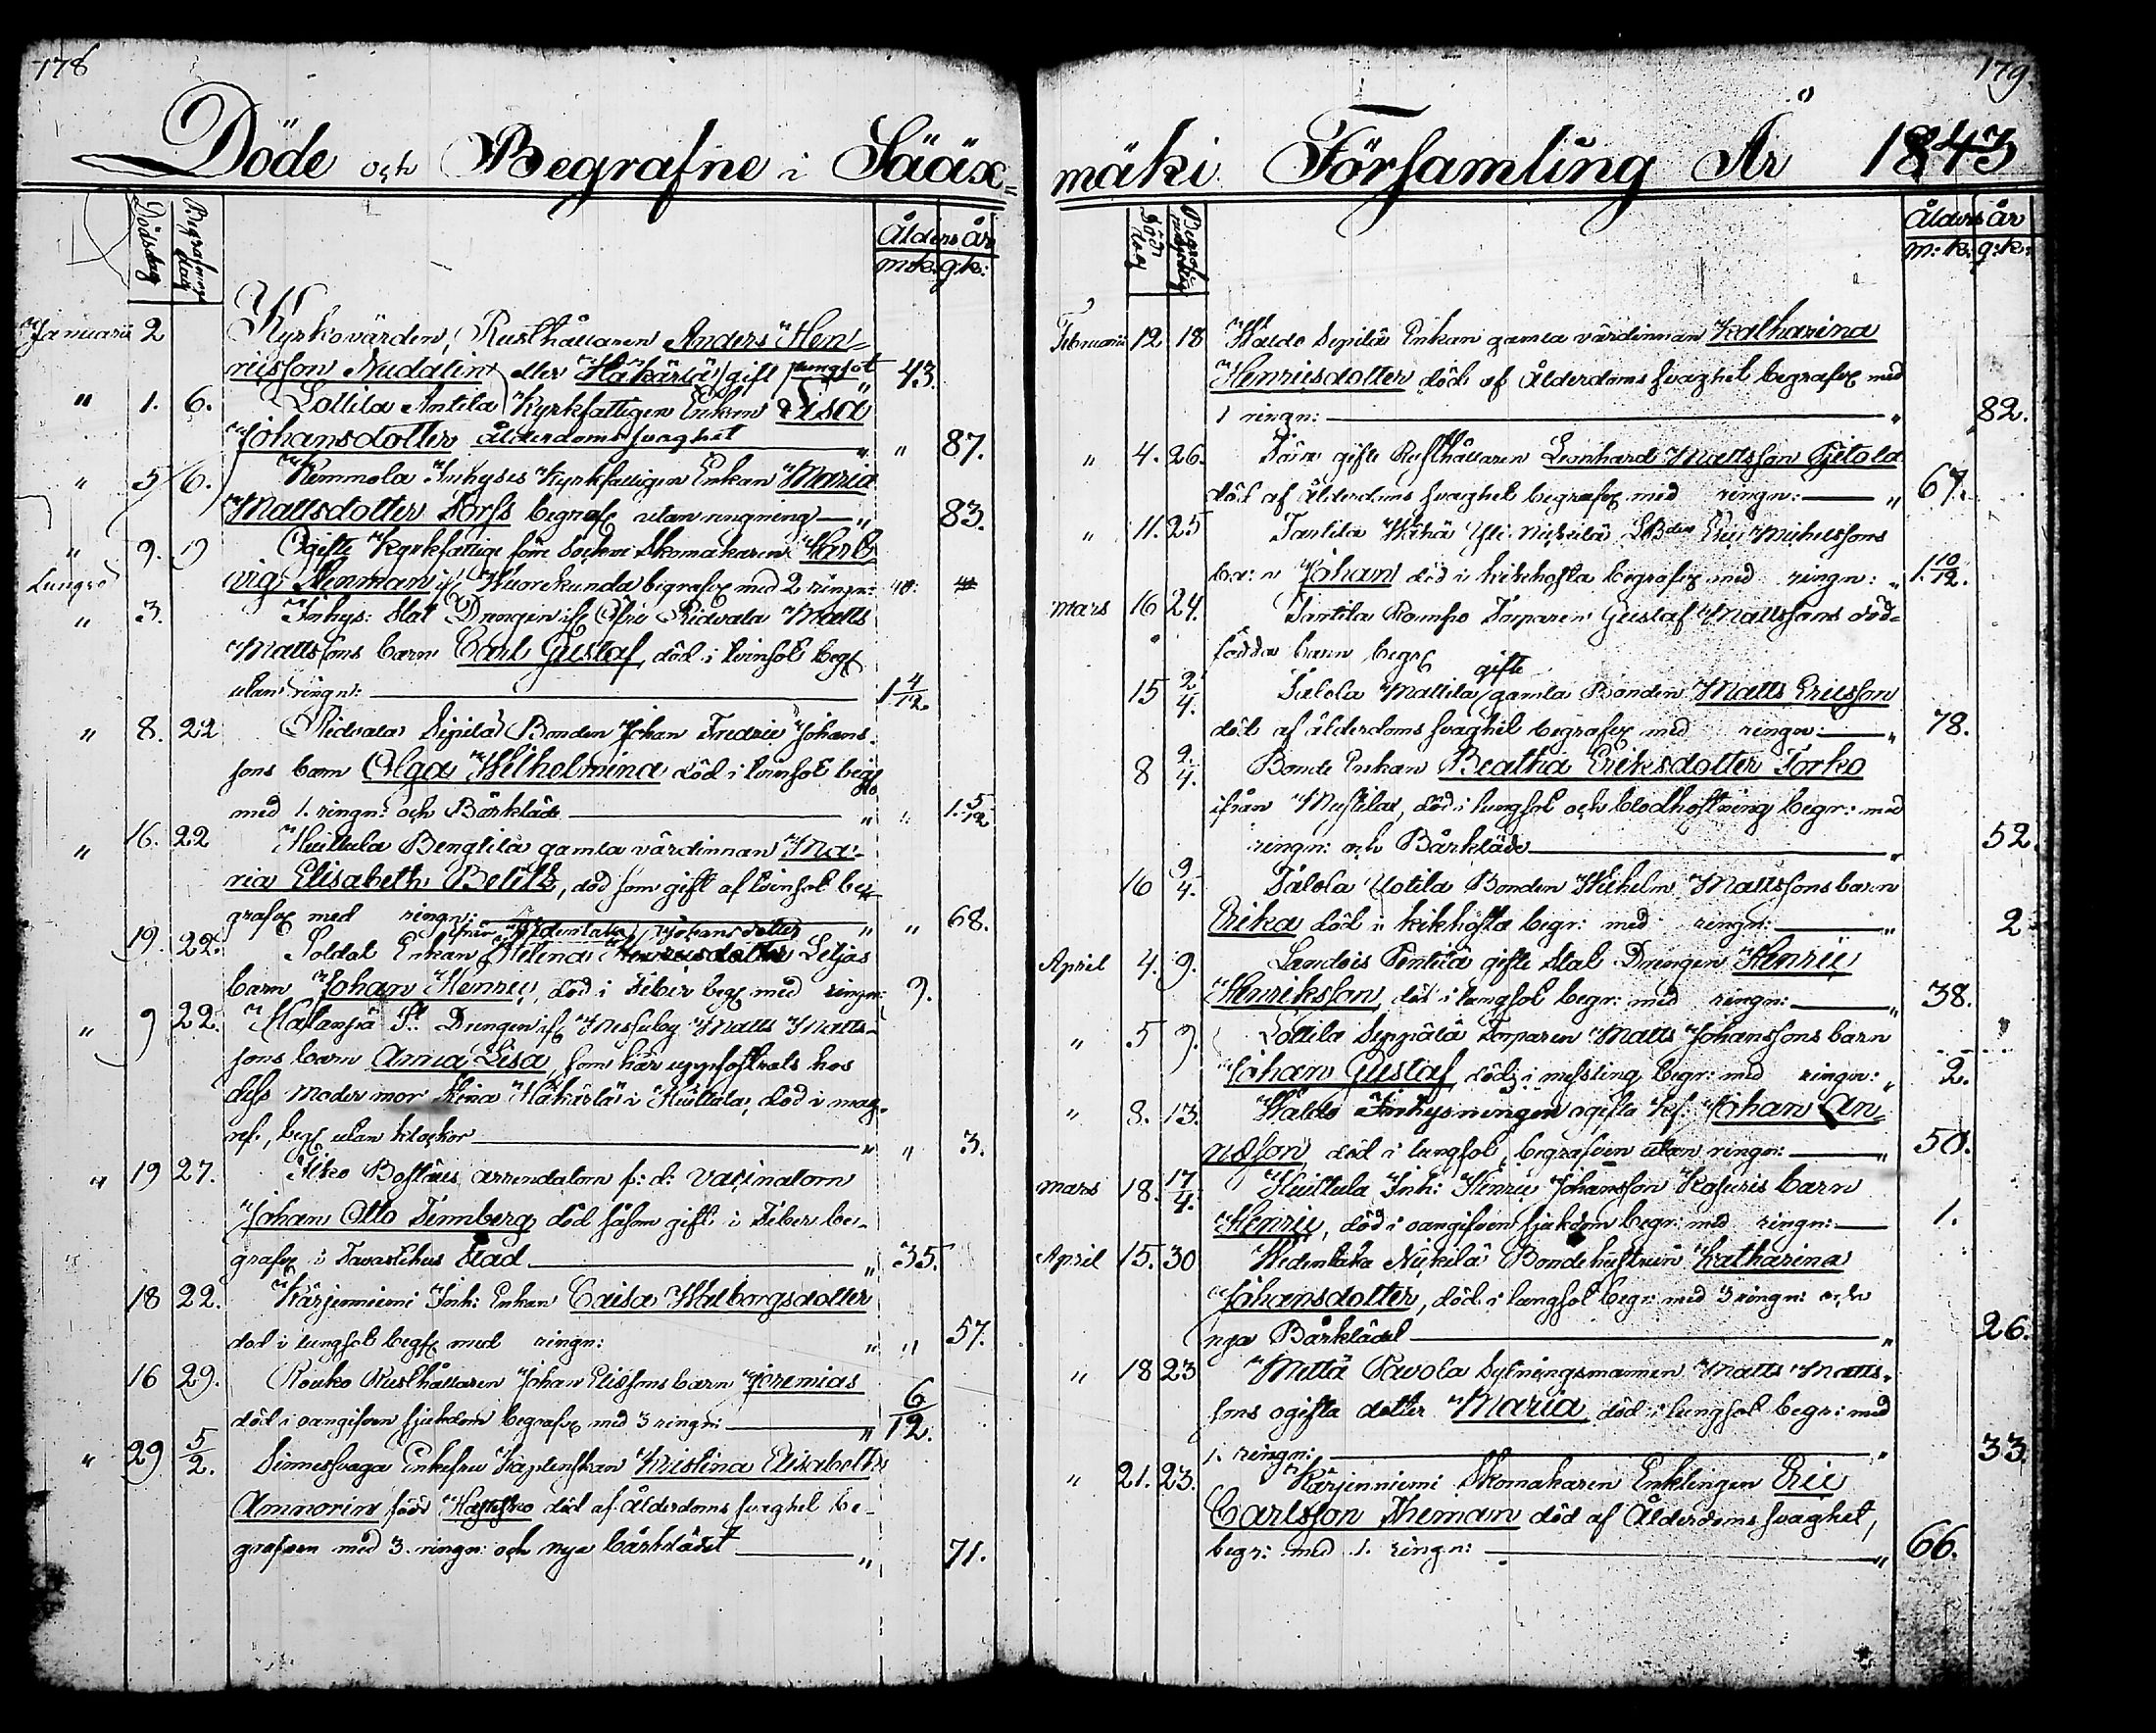 178
Döde och Begrafne i Sääx=
Dödsdag Begrafningsdag Ålders år
m:k: q:k:
Januarii 2 Kyrkovärden, Rusthållaren Anders Hen-
ricsson Nudalin eller Häkärlä gift lungsot 43
" 1. 6. Lottila Antila Kyrkfattigen Enkan Lisa
Johansdotter ålderdoms svaghet " " 87.
" 5 6. Kemmola Inhyses Kyrkfattigen Enkan Maria
Mattsdotter Forss begrafn utan ringning " 83.
" 9. Ogifte Kyrkfattige före Sockne Skomakaren
Lungso vig Nenman if: Wuorekunda begrafn med 2 ringn: 40:
" 3. Inhys: Stat Drengen Ridvala Matts
Mattssons barn Carl Gustaf, död i tvinsot begr
utan ringn: 1 4/12.
" 8. 22 Ridvala Sipilä Bonden Johan Fredric Johans-
sons barn Olga Wilhelmina död i tvinsot begr
med 1. ringn: och Bårkläde " " 1. 5/12
" 16. 22 Huittula Bengtilä gamla värdinnan Ma-
ria Elisabeth Belitz, död som gift af tvinsot be-
grafn med ringn: " " 68.
ifrån Johansdotter
19. 22. Soldat Enkan Helena Liljas
barn Johan Henric, död i Feber begr med ringn: 9.
" 9 22. Drengen Matts Matts-
sons barn Anna Lisa, som här uppfostrats hos
dess moder mor Stina Häkärlä i Huittula, död i mag-
ref, begr utan klockor " " 3.
" 19 27. Arrendatorn f: d: Vaccinatorn
Johan Otto Tennberg död såsom gift i Feber be-
grafn i Tavastehus Stad " 35.
18 22. Kärjenniemi Inh: Enkan Caisa Wilborgsdotter
död i lungsot begr med ringn: " " 57.
16 29. Rouko Rusthållaren Johan Ericssons barn Jeremias
död i oangifven sjukdom begrafn med 3 ringn: " 6/12.
" 29 5/2. Sinnessvaga Enkefru Kaptenskan Kristina Elisabeth
Amnorin född död af Ålderdoms svaghet be-
grafven med 3. ringn: och nya bårklädet " 71.
179
mäki Församling År 1843
Död dag Begrafningsdag Ålders år
m:k: q:k:
Februarii 12 18 Waldo Sipilä Enkan gamla värdinnan Katharina
Henricsdotter död af Ålderdoms svaghet begrafn med
1 ringn: " 82.
" 4. 26. gifte Rusthållaren Leonhard Mattsson
död af Ålderdoms svaghet begrafn med ringn: " 67.
" 11. 25 Tarttila Wähä Yli Nickilä Eric Michelssons
ba:n Johan död i kikhosta begrafn med ringn: " 1 10/12.
Mars 16 24. Tarttila Torparen Gustaf Mattssons död-
födda barn begr
gifte
15 2/4. Jalola Mattila gamla Bonden Matts Ericsson
död af ålderdoms svaghet begrafn med ringn: " 78.
8 2/4. Bonde Enkan Beatha Eriksdotter Torko
ifrån död i lungsot och blodhostning begr: med
ringn: och Bårkläde " 52.
16 9/4. Jalola Uotila Bonden Wilhelm Mattssons barn
Erika död i kikhosta begr: med ringn: " 2
April 4. 9. Pentilä gifte Stat Drengen Henric
Henriksson, död i lungsot begr: med ringn: " 38.
" 5 9. Lottila Seppälä Torparen Matts Johanssons barn
Johan Gustaf, död i messling begr: med ringn: " 2.
" 8. 13. Waldo Inhysningen ogifta Johan An-
nasson död i lungsot, begrafven utan ringn: " 50.
Mars 18. 17/4. Huittula Inh: Henric Johansson barn
Henric, död i oangifven sjukdom begr: med ringn: 1.
April 15. 30 Nickilä Bondehustrun Katharina
Johansdotter, död i lungsot begr: med 3 ringn: och
nya Bårklädet " 26.
" 18 23 Metlä Pavola Sytningsmannen Matts Matts-
sons ogifta dotter Maria död i lungsot begr: med
1. ringn: " 33
" 21. 23. Kärjenniemi Skomakaren Enklingen Eric
Carlsson Theman död af Ålderdoms svaghet,
begr: med 1. ringn: " 66.